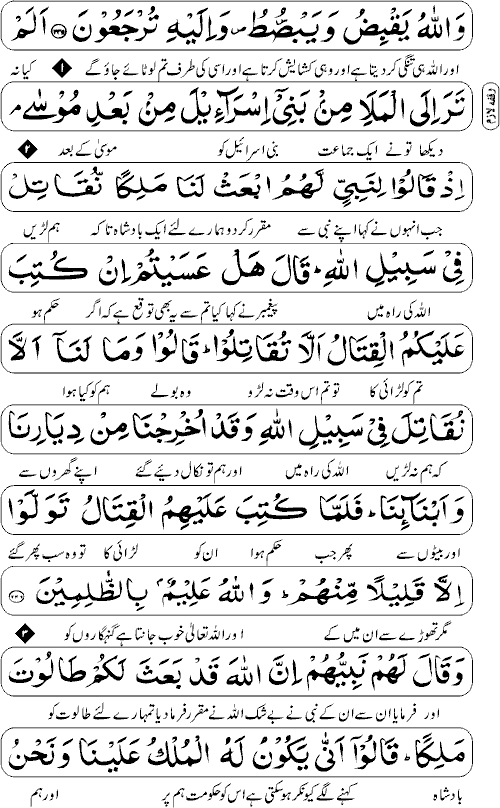 وَاللّٰهُ يَقْبِضُ وَيَبْصُۜطُ ۪ وَاِلَيْهِ تُرْجَعُوْنَ ﴿۲۴۵﴾ اَلَمْ
اور اللہ ہی تنگی کر دیتا ہے اور وہی کشایش کرتا ہے اور اسی کی طرف تم لوٹائے جاؤ گے ۱ کیا نہ
تَرَ اِلَى الْمَلَاِ مِنْۢ بَنِيْۤ اِسْرَآءِيْلَ مِنْۢ بَعْدِ مُوْسٰى ۘ
وقف لازم
دیکھا تو نے ایک جماعت بنی اسرائیل کو موسیٰ کے بعد ۲
اِذْ قَالُوْا لِنَبِيٍّ لَّهُمُ ابْعَثْ لَنَا مَلِكًا نُّقَاتِلْ
جب انہوں نے کہا اپنے نبی سے مقرر کر دو ہمارے لئے ایک بادشاہ تاکہ ہم لڑیں
فِيْ سَبِيْلِ اللّٰهِ ؕ قَالَ هَلْ عَسَيْتُمْ اِنْ كُتِبَ
اللہ کی راہ میں پیغمبر نے کہا کیا تم سے یہ بھی توقع ہے کہ اگر حکم ہو
عَلَيْكُمُ الْقِتَالُ اَلَّا تُقَاتِلُوْا ؕ قَالُوْا وَمَا لَنَاۤ اَلَّا
تم کو لڑائی کا تو تم اس وقت نہ لڑو وہ بولے ہم کو کیا ہوا
نُقَاتِلَ فِيْ سَبِيْلِ اللّٰهِ وَقَدْ اُخْرِجْنَا مِنْ دِيَارِنَا
کہ ہم نہ لڑیں اللہ کی راہ میں اور ہم تو نکال دیئے گئے اپنے گھروں سے
وَاَبْنَآئِنَا ؕ فَلَمَّا كُتِبَ عَلَيْهِمُ الْقِتَالُ تَوَلَّوْا
اور بیٹوں سے پھر جب حکم ہوا ان کو لڑائی کا تو وہ سب پھر گئے
اِلَّا قَلِيْلًا مِّنْهُمْ ؕ وَاللّٰهُ عَلِيْمٌۢ بِالظّٰلِمِيْنَ ﴿۲۴۶﴾
مگر تھوڑے سے ان میں کے اور اللہ تعالیٰ خوب جانتا ہے گنہگاروں کو ۳
وَقَالَ لَهُمْ نَبِيُّهُمْ اِنَّ اللّٰهَ قَدْ بَعَثَ لَكُمْ طَالُوْتَ
اور فرمایا ان سے ان کے نبی نے بے شک اللہ نے مقرر فرما دیا تمہارے لئے طالوت کو
مَلِكًا ؕ قَالُوْۤا اَنّٰى يَكُوْنُ لَهُ الْمُلْكُ عَلَيْنَا وَنَحْنُ
بادشاہ کہنے لگے کیونکر ہو سکتی ہے اس کو حکومت ہم پر اور ہم